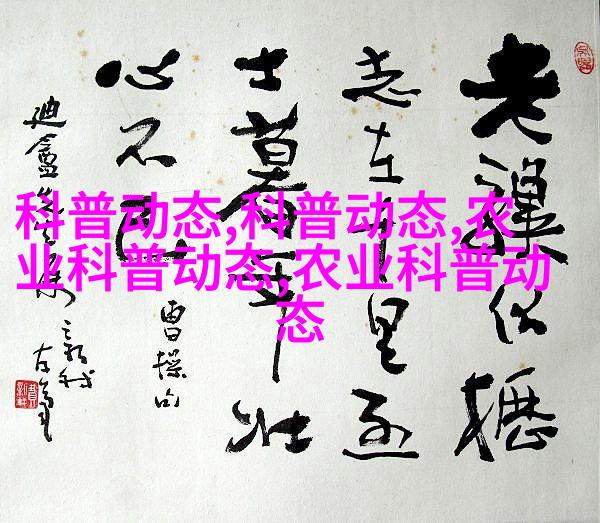 老驥伏櫪
志在千里烈
士暮年壮
心不已
曹操句
迪盦先生
科普动态,科普动态,农
业科普动态,农业科普动
态